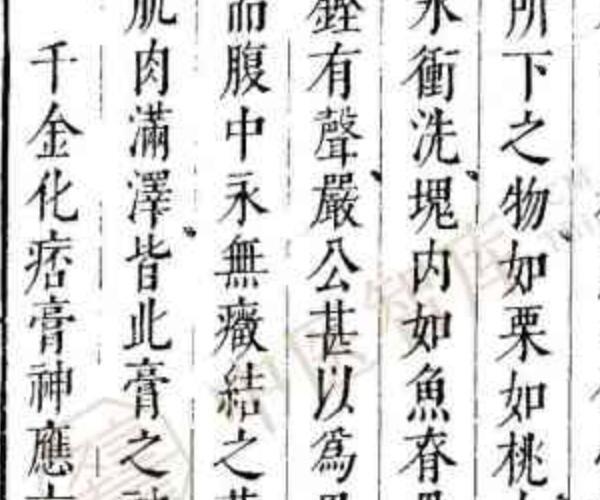 所下之物如栗如桃
水衝洗塊内如魚脊
鏗有聲嚴公甚以為
而腹中永無癥結之
肌肉滿澤皆此膏之
千金化痞膏神應